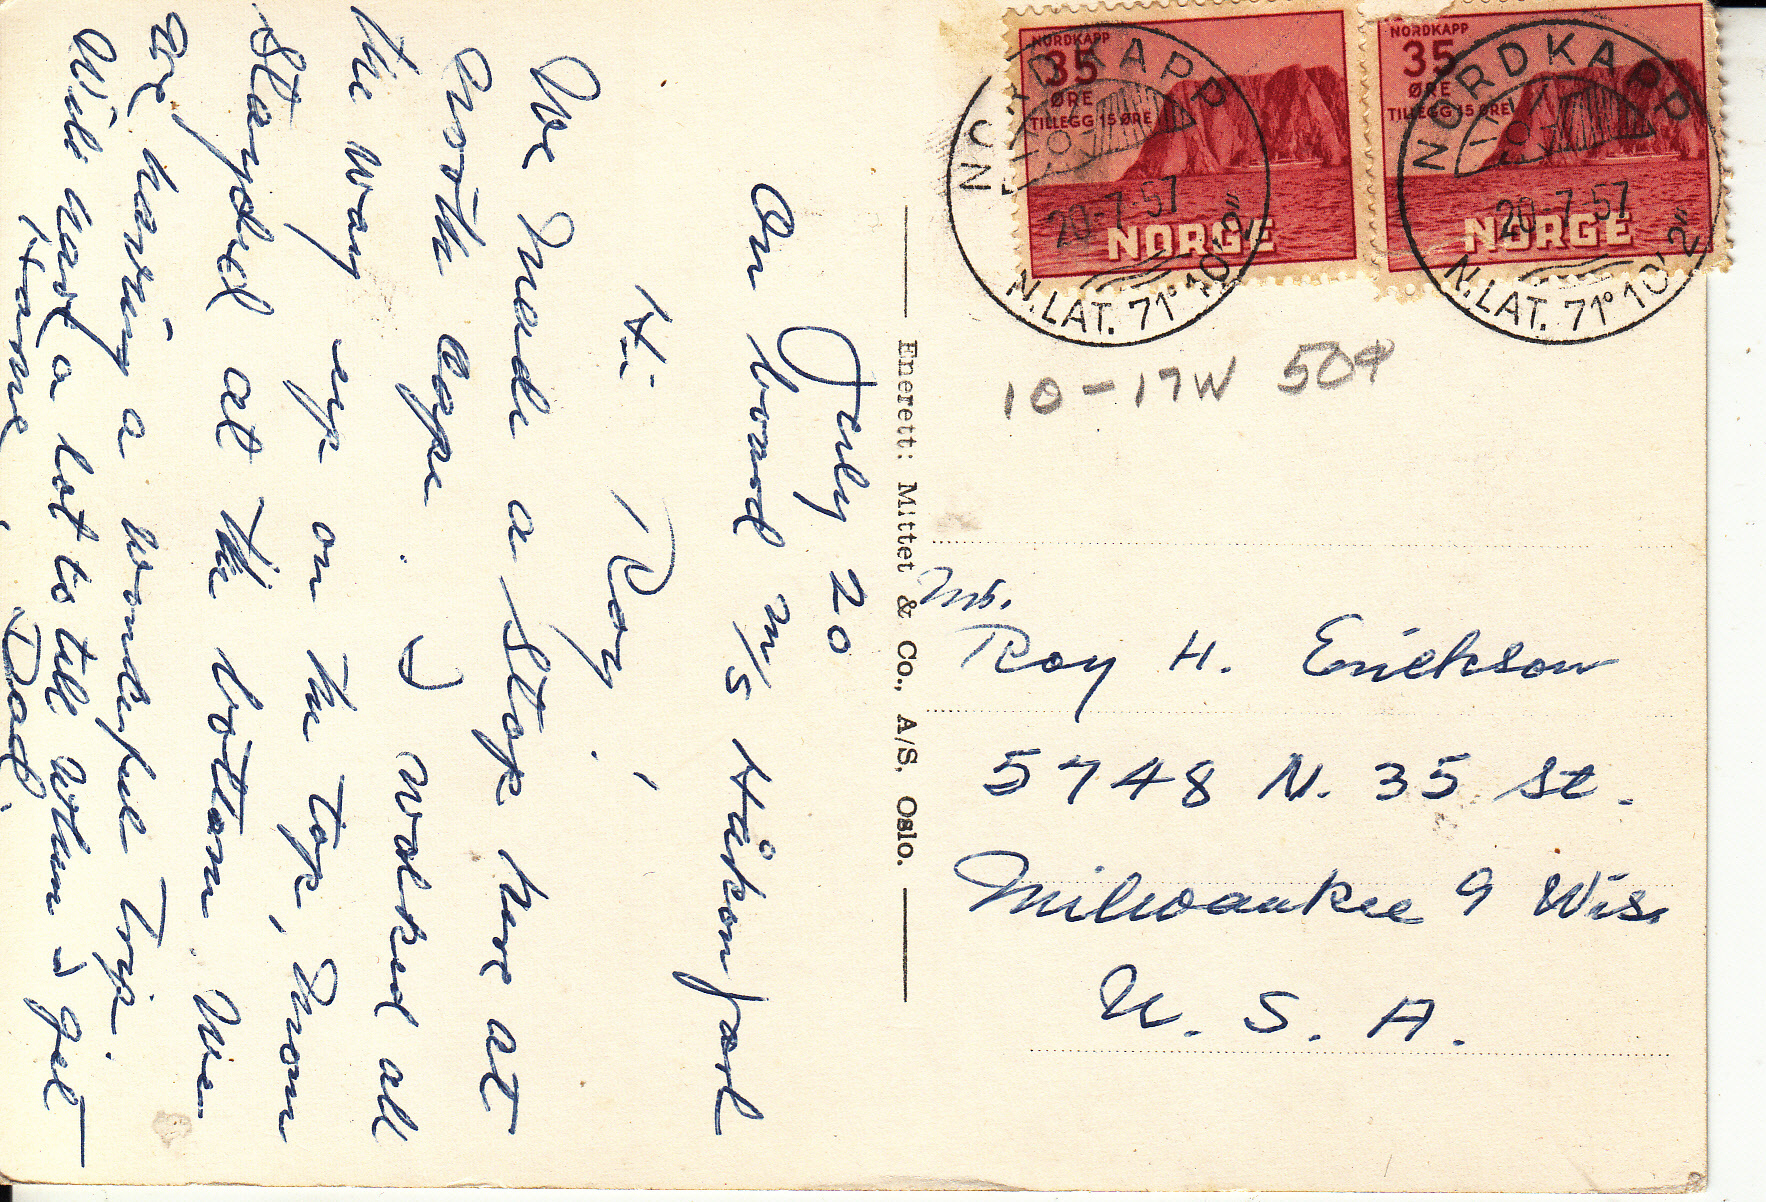 July 20
On board M/S Håkon Jarl
Hi Roy,
We made a stop here at
North Cape. I walked all
the way up on the top, Mom
stayed at the bottom. We
are having a wonderful trip.
Will have a lot to tell when I get
Home, Dad.
Enerett: Mittet & Co., A/S. Oslo.
NORDKAPP
35
ØRE
TILLEGG 15 ØRE
NORGE
NORDKAPP
35
ØRE
TILLEGG 15 ØRE
NORGE
NORDKAPP
20-7-57
N.LAT. 71° 10' 21"
NORDKAPP
20-7-57
N.LAT. 71° 10' 21"
10-17W 50¢
Mr.
Roy H. Erickson
5748 N. 35 St.
Milwaukee 9 Wis.
U. S. A.